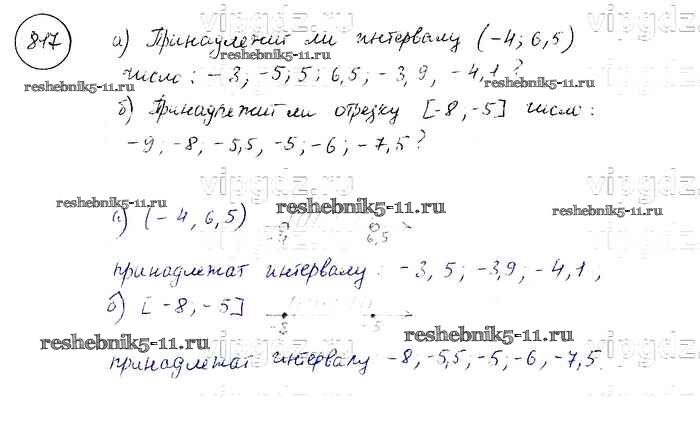 vipgdz.ru vipgdz.ru
817 а) Принадлежит ли интервалу (-4; 6,5)
число: -3; -5; 5; 6,5; -3,9, -4,1?
reshebnik5-11.ru reshebnik5-11.ru
б) Принадлежит ли отрезку [-8, -5] число:
-9; -8; -5,5, -5; -6; -7,5?
vipgdz.ru vipgdz.ru
reshebnik5-11.ru reshebnik5-11.ru reshebnik5-11.ru
а) (-4, 6,5) -4 6,5
принадлежат интервалу: -3, 5; -3,9; -4,1,
б) [-8, -5] -8 -5
reshebnik5-11.ru reshebnik5-11.ru
vipgdz.ru vipgdz.ru
принадлежат интервалу -8, -5,5, -5; -6, -7,5.